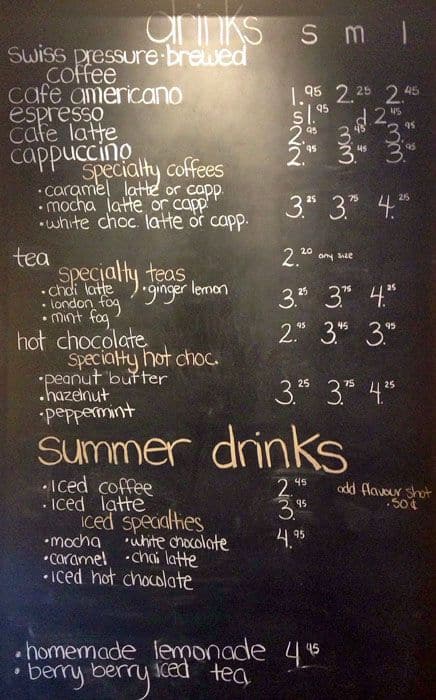 drinks s m l
swiss pressure·brewed
coffee
cafe americano 1.95 2.25 2.45
espresso s1.95 d2.45
cafe latte 2.95 3.45 3.95
cappuccino 2.95 3.45 3.95
specialty coffees
·caramel latte or capp.
·mocha latte or capp. 3.25 3.75 4.25
·white choc. latte or capp.
tea 2.20 any size
specialty teas
·chai latte ·ginger lemon
·london fog 3.25 3.75 4.25
·mint fog
hot chocolate 2.95 3.45 3.95
specialty hot choc.
·peanut butter
·hazelnut 3.25 3.75 4.25
·peppermint
summer drinks
·iced coffee 2.45 add flavour shot
·iced latte 3.95 .50¢
iced specialties
·mocha ·white chocolate 4.95
·caramel ·chai latte
·iced hot chocolate
·homemade lemonade 4.45
·berry berry iced tea